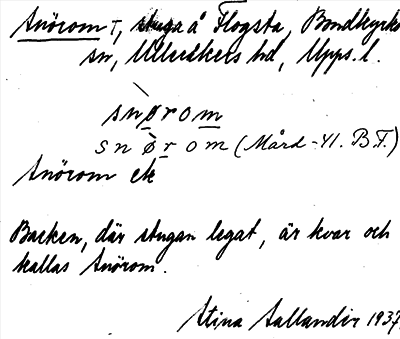 Snörom T, stuga å Flogsta, Bondkyrko
sn, Ulleråkers hd, Upps. l.
snørom
snø̀rom (Mård -41. B.F.)
Snörom ck
Backen, där stugan legat, är kvar och
kallas Snörom.
Stina Sallander 1937.